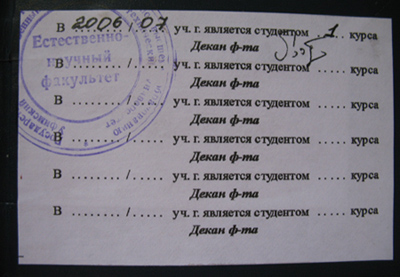 В 2006/07 уч. г. является студентом ..1.. курса
Декан ф-та
В ......../..... уч. г. является студентом ..... курса
Декан ф-та
В ......../..... уч. г. является студентом ..... курса
Декан ф-та
В ......../..... уч. г. является студентом ..... курса
Декан ф-та
В ......../..... уч. г. является студентом ..... курса
Декан ф-та
В ......../..... уч. г. является студентом ..... курса
Декан ф-та
Естественно-
научный
факультет